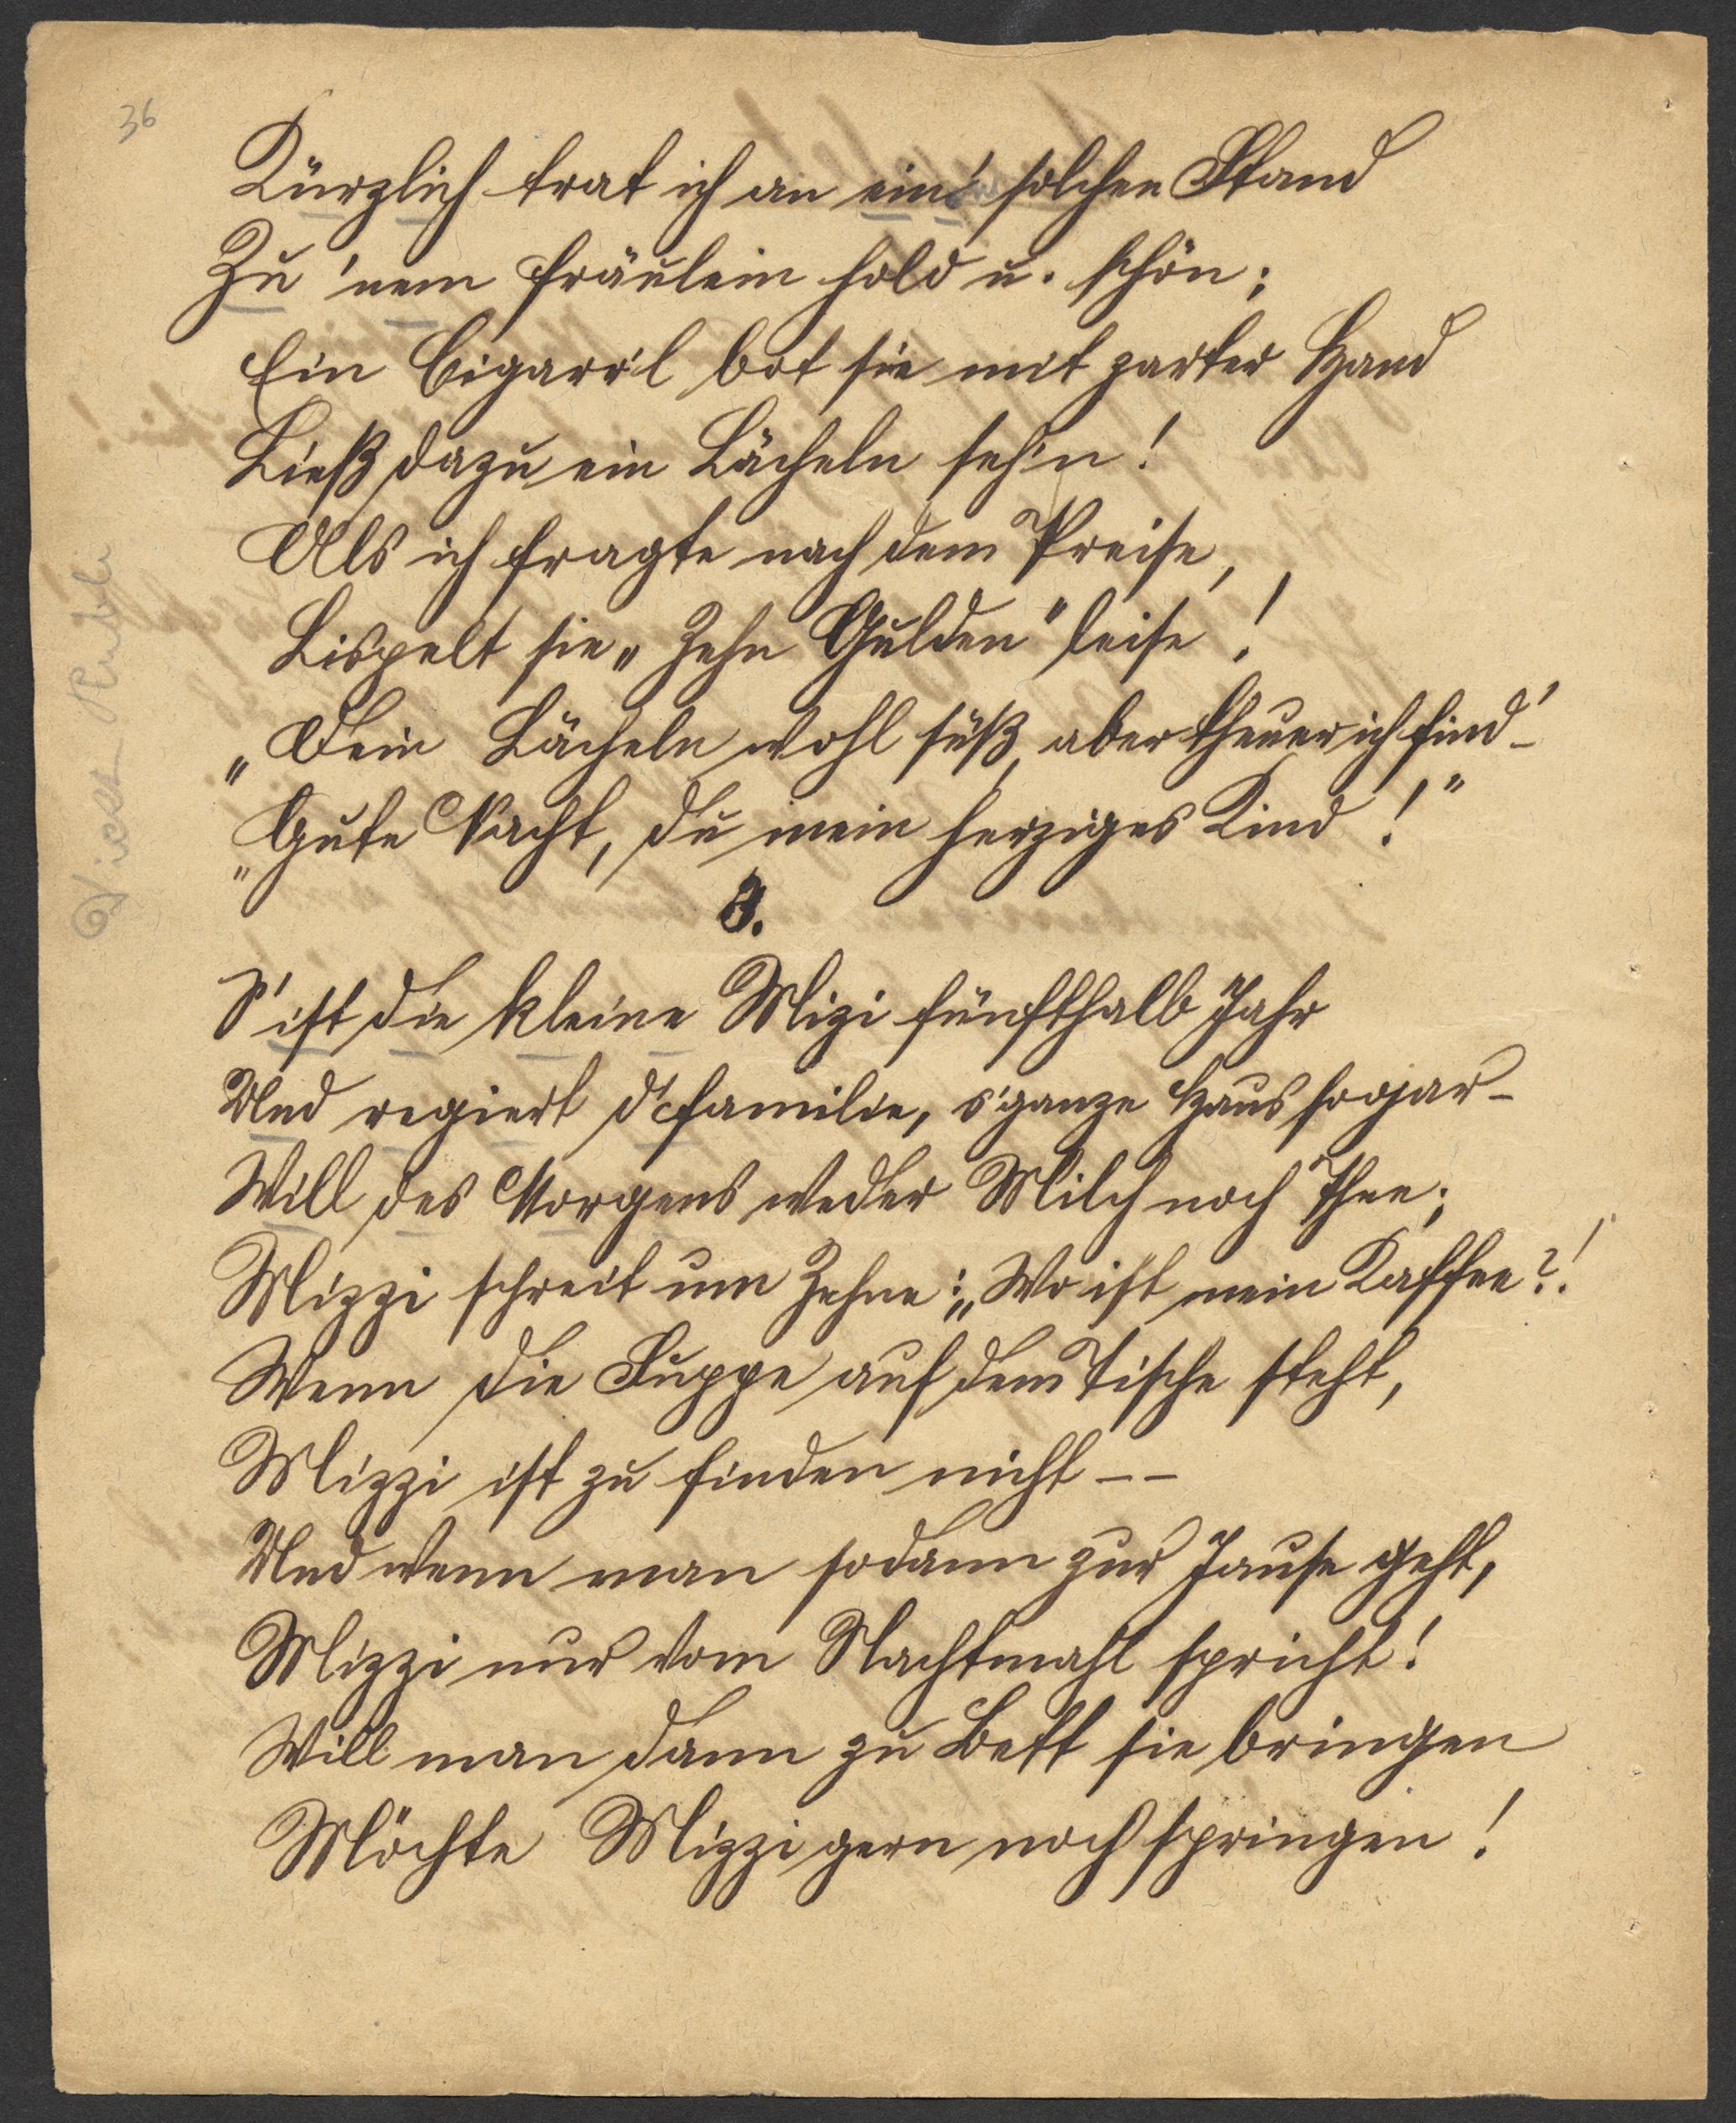 36
Kürzlich trat ich an ein' solchen Stand
Zu 'nem Fräulein hold u. schön;
Ein Cigarr'l bot sie mit zarter Hand
Ließ dazu ein Lächeln seh'n!
Als ich fragte nach dem Preise,
Lispelt sie „Zehn Gulden" leise!
„Dein Lächeln wohl süß, aber theuer ich find'-
„Gute Nacht, du mein herziges Kind!"
3.
S'ist die kleine Mizi fünfthalb Jahr
Und regiert d'Familie, s'ganze Haus sogar-
Will des Morgens weder Milch noch Thee;
Mizzi schreit um Zehne: „Wo ist mein Kaffee?!"
Wenn die Suppe auf dem Tische steht,
Mizzi ist zu finden nicht--
Und wenn man sodann zur Jause geht,
Mizzi nur vom Nachtmahl spricht!
Will man dann zu Bett sie bringen
Möchte Mizzi gern noch springen!